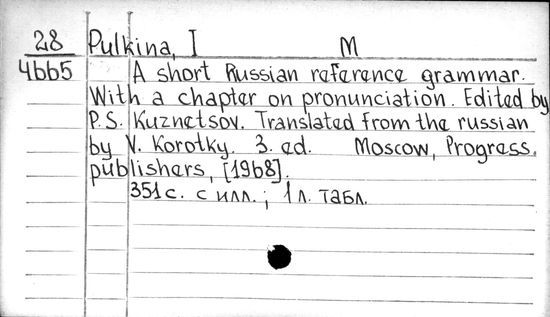 28 Pulkina, I M
4665 A short Russian reference grammar.
With a chapter on pronunciation. Edited by
P.S. Kuznetsov. Translated from the russian
by V. Korotky. 3. ed. Moscow, Progress.
publishers, [1968].
351 с. с илл.; 1 л. табл.